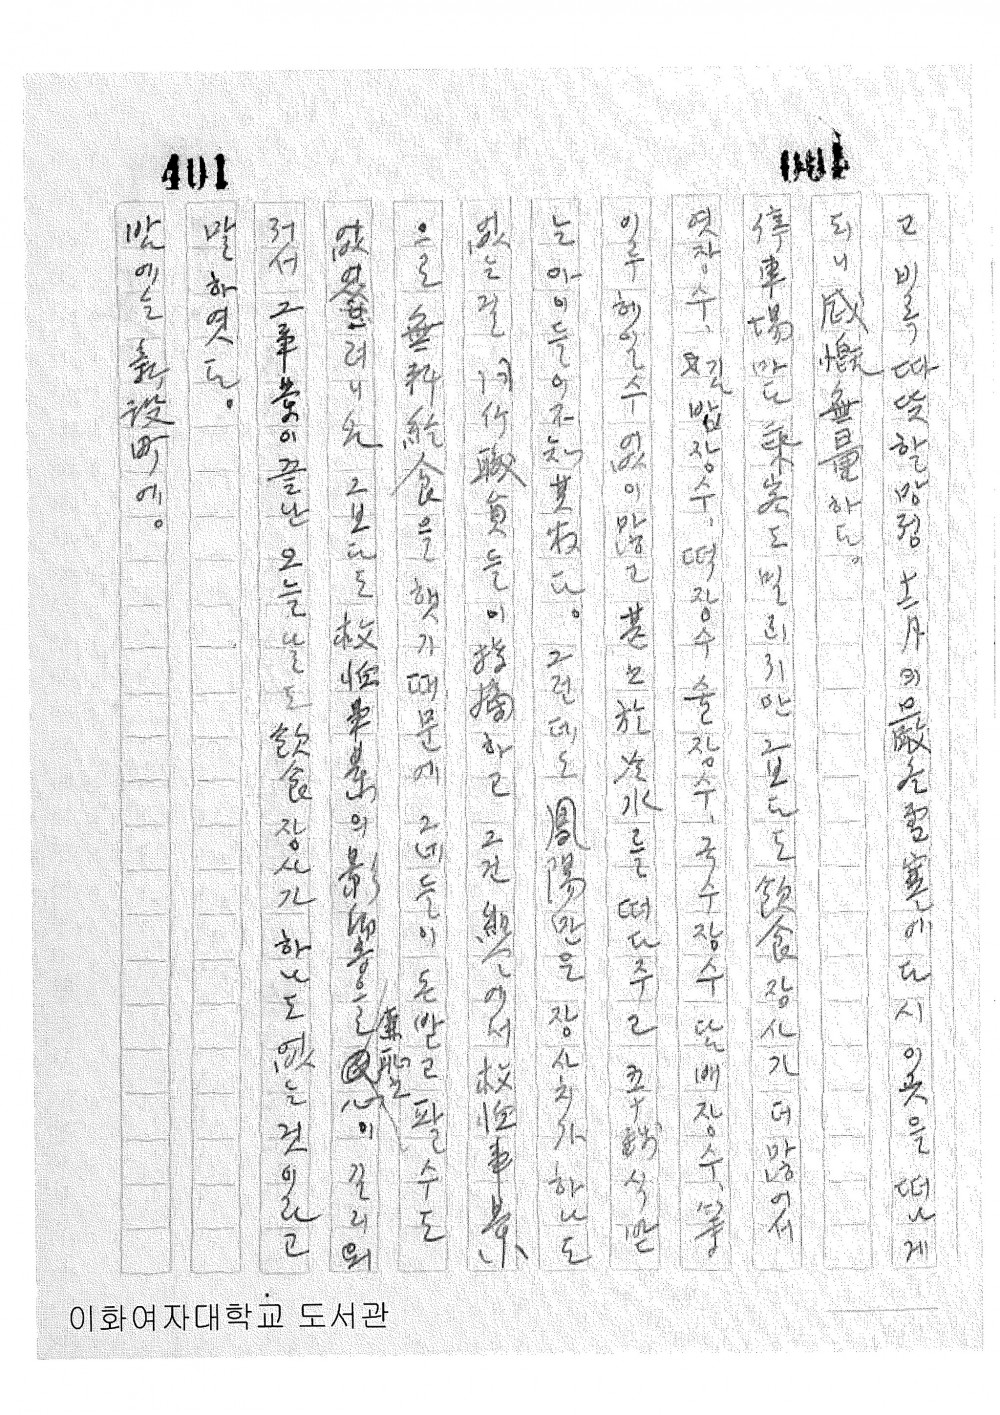 401
001
고 비록 따뜻할망정 十二月의 嚴冬雪寒에 다시 이곳을 떠나게
되니 感慨無量하다。
停車場마다 乘客도 밀리지만 그보다도 飮食장사가 더 많어서
엿장수, 김밥장수, 떡장수 술장수, 국수장수 담배장수,
이루 헤일수 없이 많고 甚至於 冷水를 떠다주고 五十錢식 받
는 아이들이 莫大하다。 그런데도 鳳陽만은 장사치가 하나도
없는걸 職員들이 指摘하고 그건 縣에서 救恤事業
으로 無料給食을 햇기 때문에 그네들이 돈받고 팔수도
없엇으려니와 그보다도 救恤事業의 影響을 心이 길리워
저서 그 事業이 끝난 오늘날도 飮食장사가 하나도 없는것이라고
말하엿다。
밤에는 新設町에。
이화여자대학교 도서관